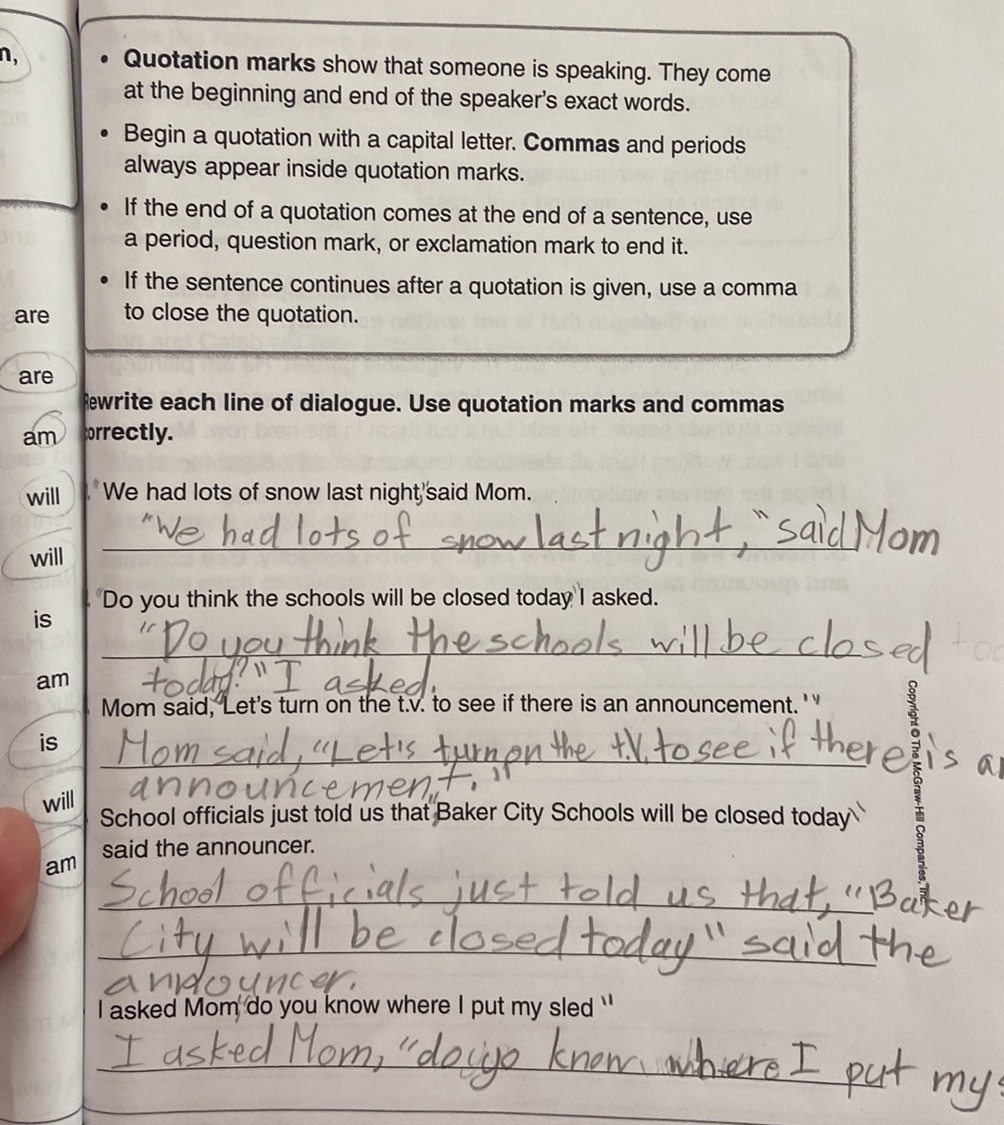 n,
• Quotation marks show that someone is speaking. They come
at the beginning and end of the speaker's exact words.
• Begin a quotation with a capital letter. Commas and periods
always appear inside quotation marks.
• If the end of a quotation comes at the end of a sentence, use
a period, question mark, or exclamation mark to end it.
• If the sentence continues after a quotation is given, use a comma
to close the quotation.
are
are
am
will
will
is
am
is
will
am
Rewrite each line of dialogue. Use quotation marks and commas
correctly.
"We had lots of snow last night," said Mom.
"We had lots of snow last night," said Mom
"Do you think the schools will be closed today" I asked.
"Do you think the schools will be closed
today?" I asked.
Mom said, "Let's turn on the t.v. to see if there is an announcement."
Mom said, "Let's turn on the t.v. to see if there is an
announcement."
School officials just told us that, "Baker City Schools will be closed today"
said the announcer.
School officials just told us that, "Baker
City will be closed today" said the
announcer.
I asked Mom, "do you know where I put my sled"
I asked Mom, "do yo know where I put my
Copyright © The McGraw-Hill Companies, Inc.